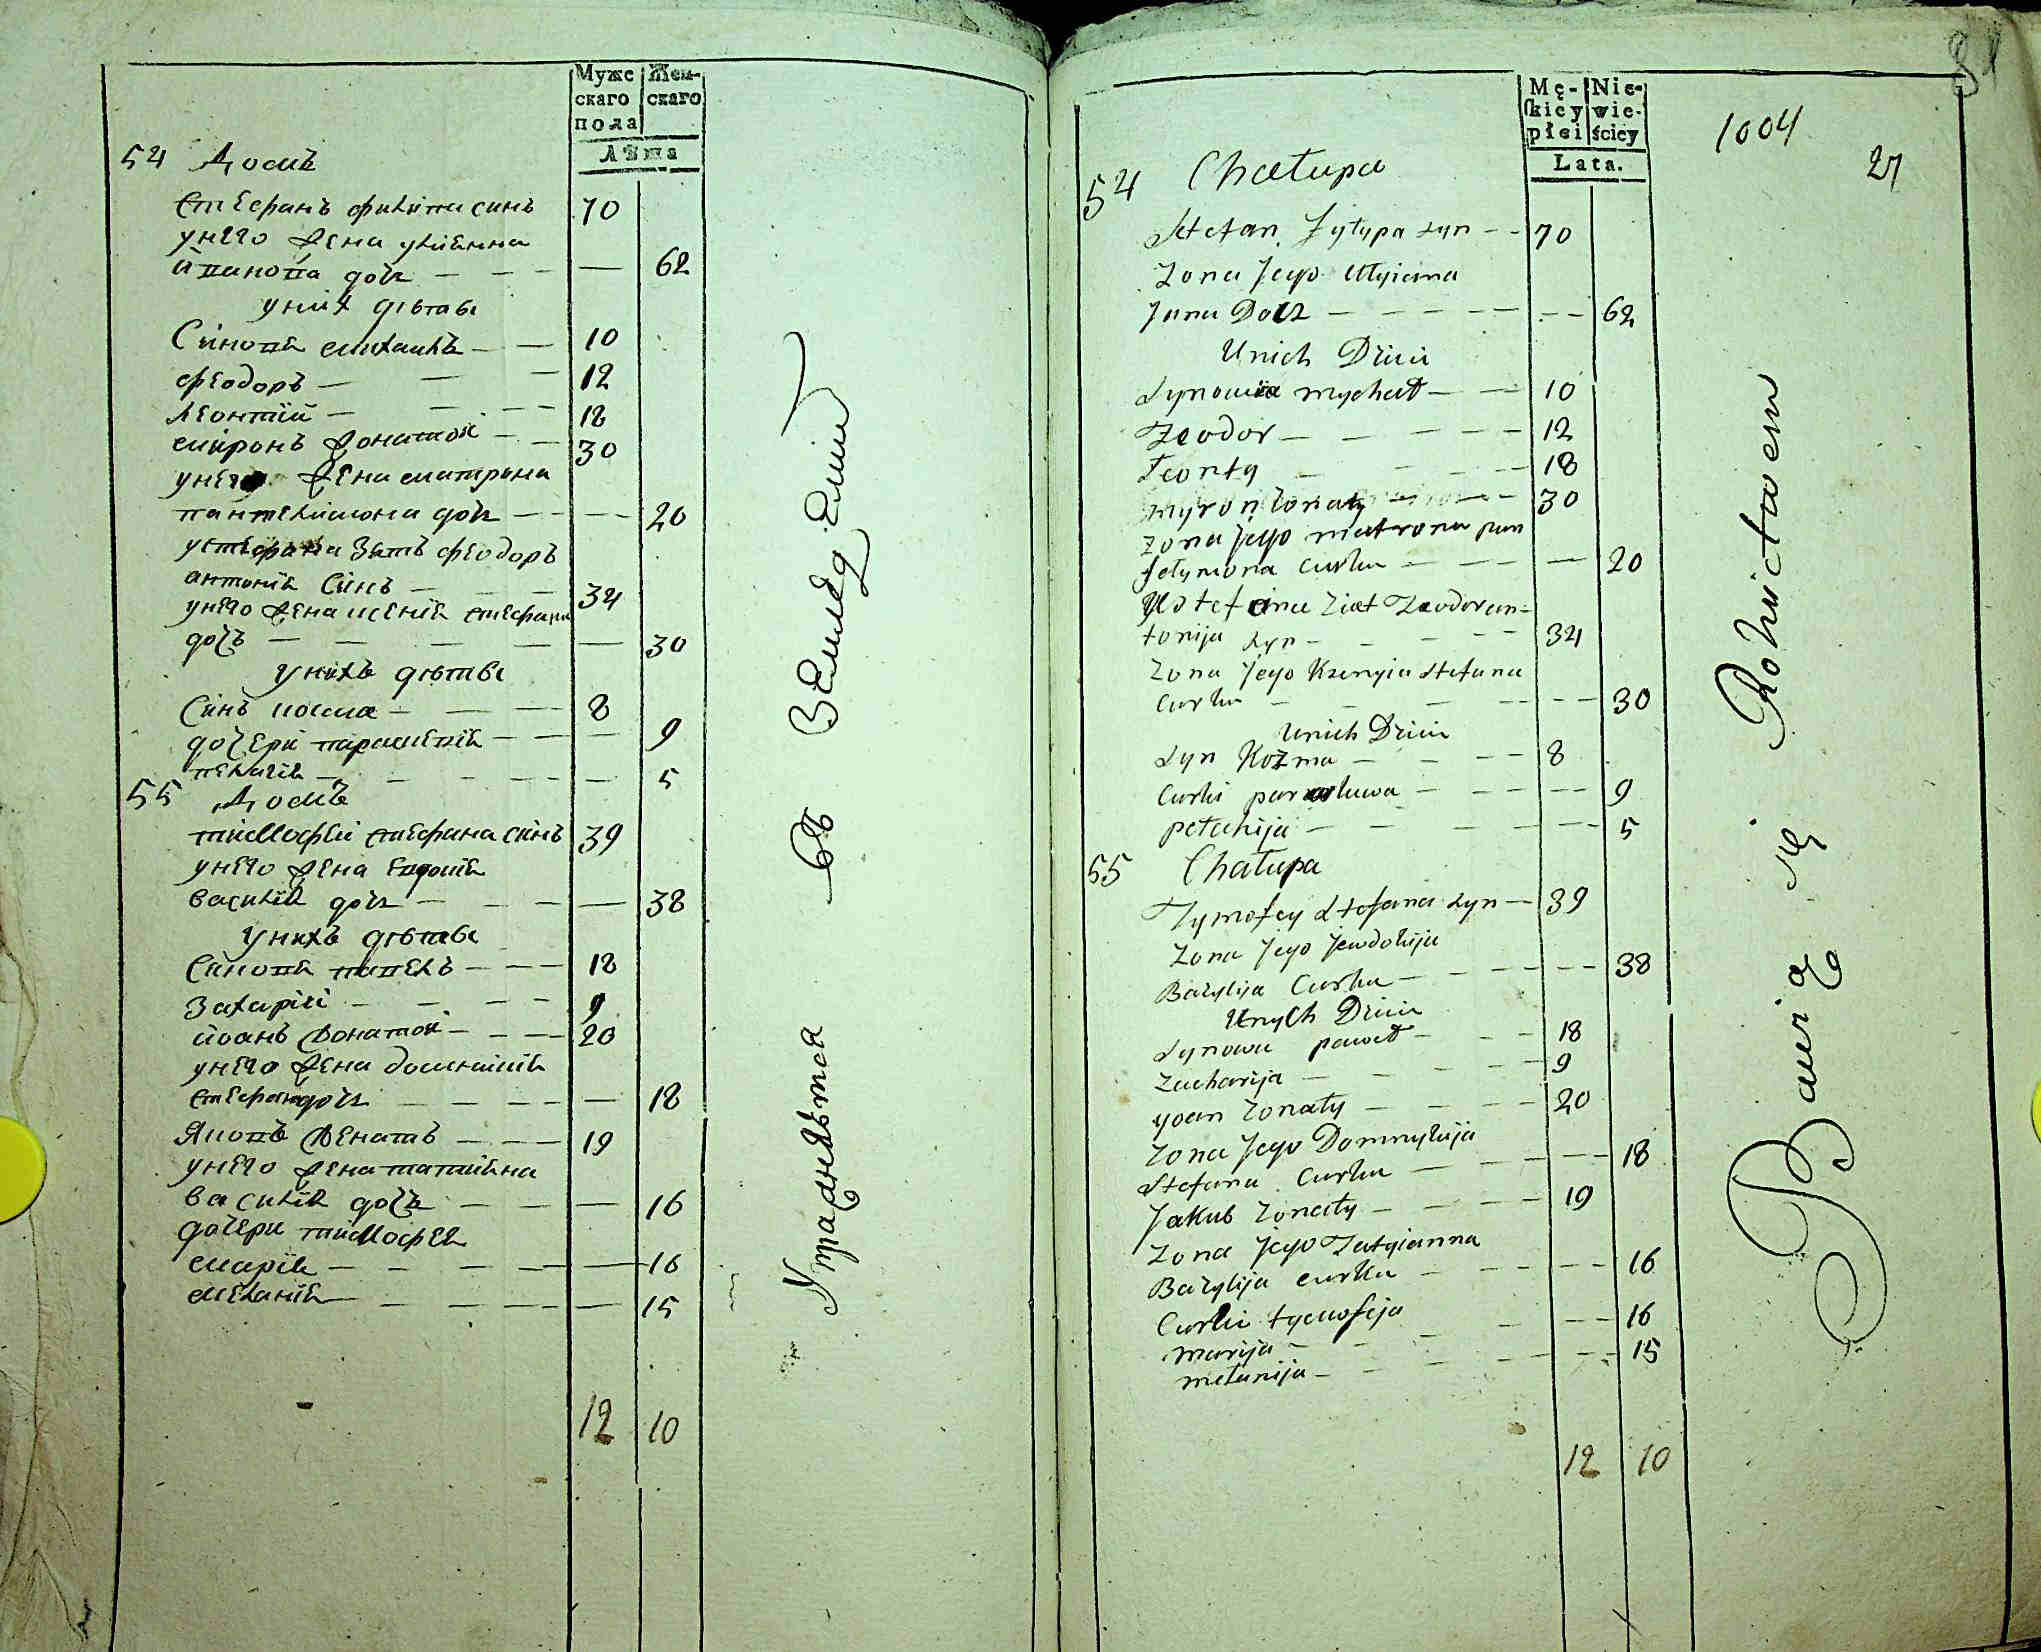 Муже
скаго
пола
Жен-
скаго
Лѣта
54 Домъ
Стефанъ филипа синъ 70
унего жена улиянна
иванова доч — — — — 62
уних дѣтве
Синове михаилъ — — 10
феодоръ — — — 12
леонтій — — — 18
миронъ жонатой — — 30
унего жена матрона
пантелимона доч — — — 20
устефана зять феодоръ
антонія Синъ — — — 34
унего жена ксенія стефана
дочъ — — — — — 30
унихъ дѣтве
Синъ козма — — — 8
дочери параскевія — — — 9
пелагія — — — — — 5
55 Домъ
тимофей стефана синъ 39
унего жена евдокія
василія доч — — — — 38
Унихъ дѣтве
Синове павелъ — — — 18
Захарій — — — — 9
иоанъ жонатой — — — 20
унего жена домникія
стефана доч — — — — 18
Яковъ женатъ — — — 19
унего жена татиянна
василія дочъ — — — 16
дочери тимофея
марія — — — — — 16
меланія — — — — — 15
12 10
Упражняѣтса въ Земледеліи
Mę-
ſkiey
płci
Nie-
wie-
ściey
Lata.
1004
27
54 Chałupa
Stefan Fylypa syn — — 70
Zona Jego Ulyianna
Jwna Docz — — — — — — — 62
Unich Dzieci
Synowie mychał — — 10
Teodor — — — — — 12
Leonty — — — 18
myron żonaty — — — 30
zona Jego matrona pan
telymona curka — — — — 20
U Stefana Ziat Teodor an=
tonija syn — — — — 34
Zona Jego Ksenyia Stefana
curka — — — — — — 30
Unich Dzieci
Syn Kozma — — — — 8
Curki paraskewa — — — — — 9
pełahija — — — — — — 5
55 Chałupa
Tymofey Stefana syn — 39
Zona Jego Jewdokija
Bazylija Curka — — — — — — 38
Unych Dzieci
Synowie paweł — — — 18
Zacharija — — — — — 9
yoan żonaty — — — — 20
Zona Jego Domnykija
Stefana Curka — — — — — 18
Jakub żonaty — — — — 19
Zona Jego Tatyianna
Bazylija curka — — — — — 16
Curki tymofeja
marija — — — — — 16
mełanija — — — — — — 15
12 10
Bawią się Rolnictwem